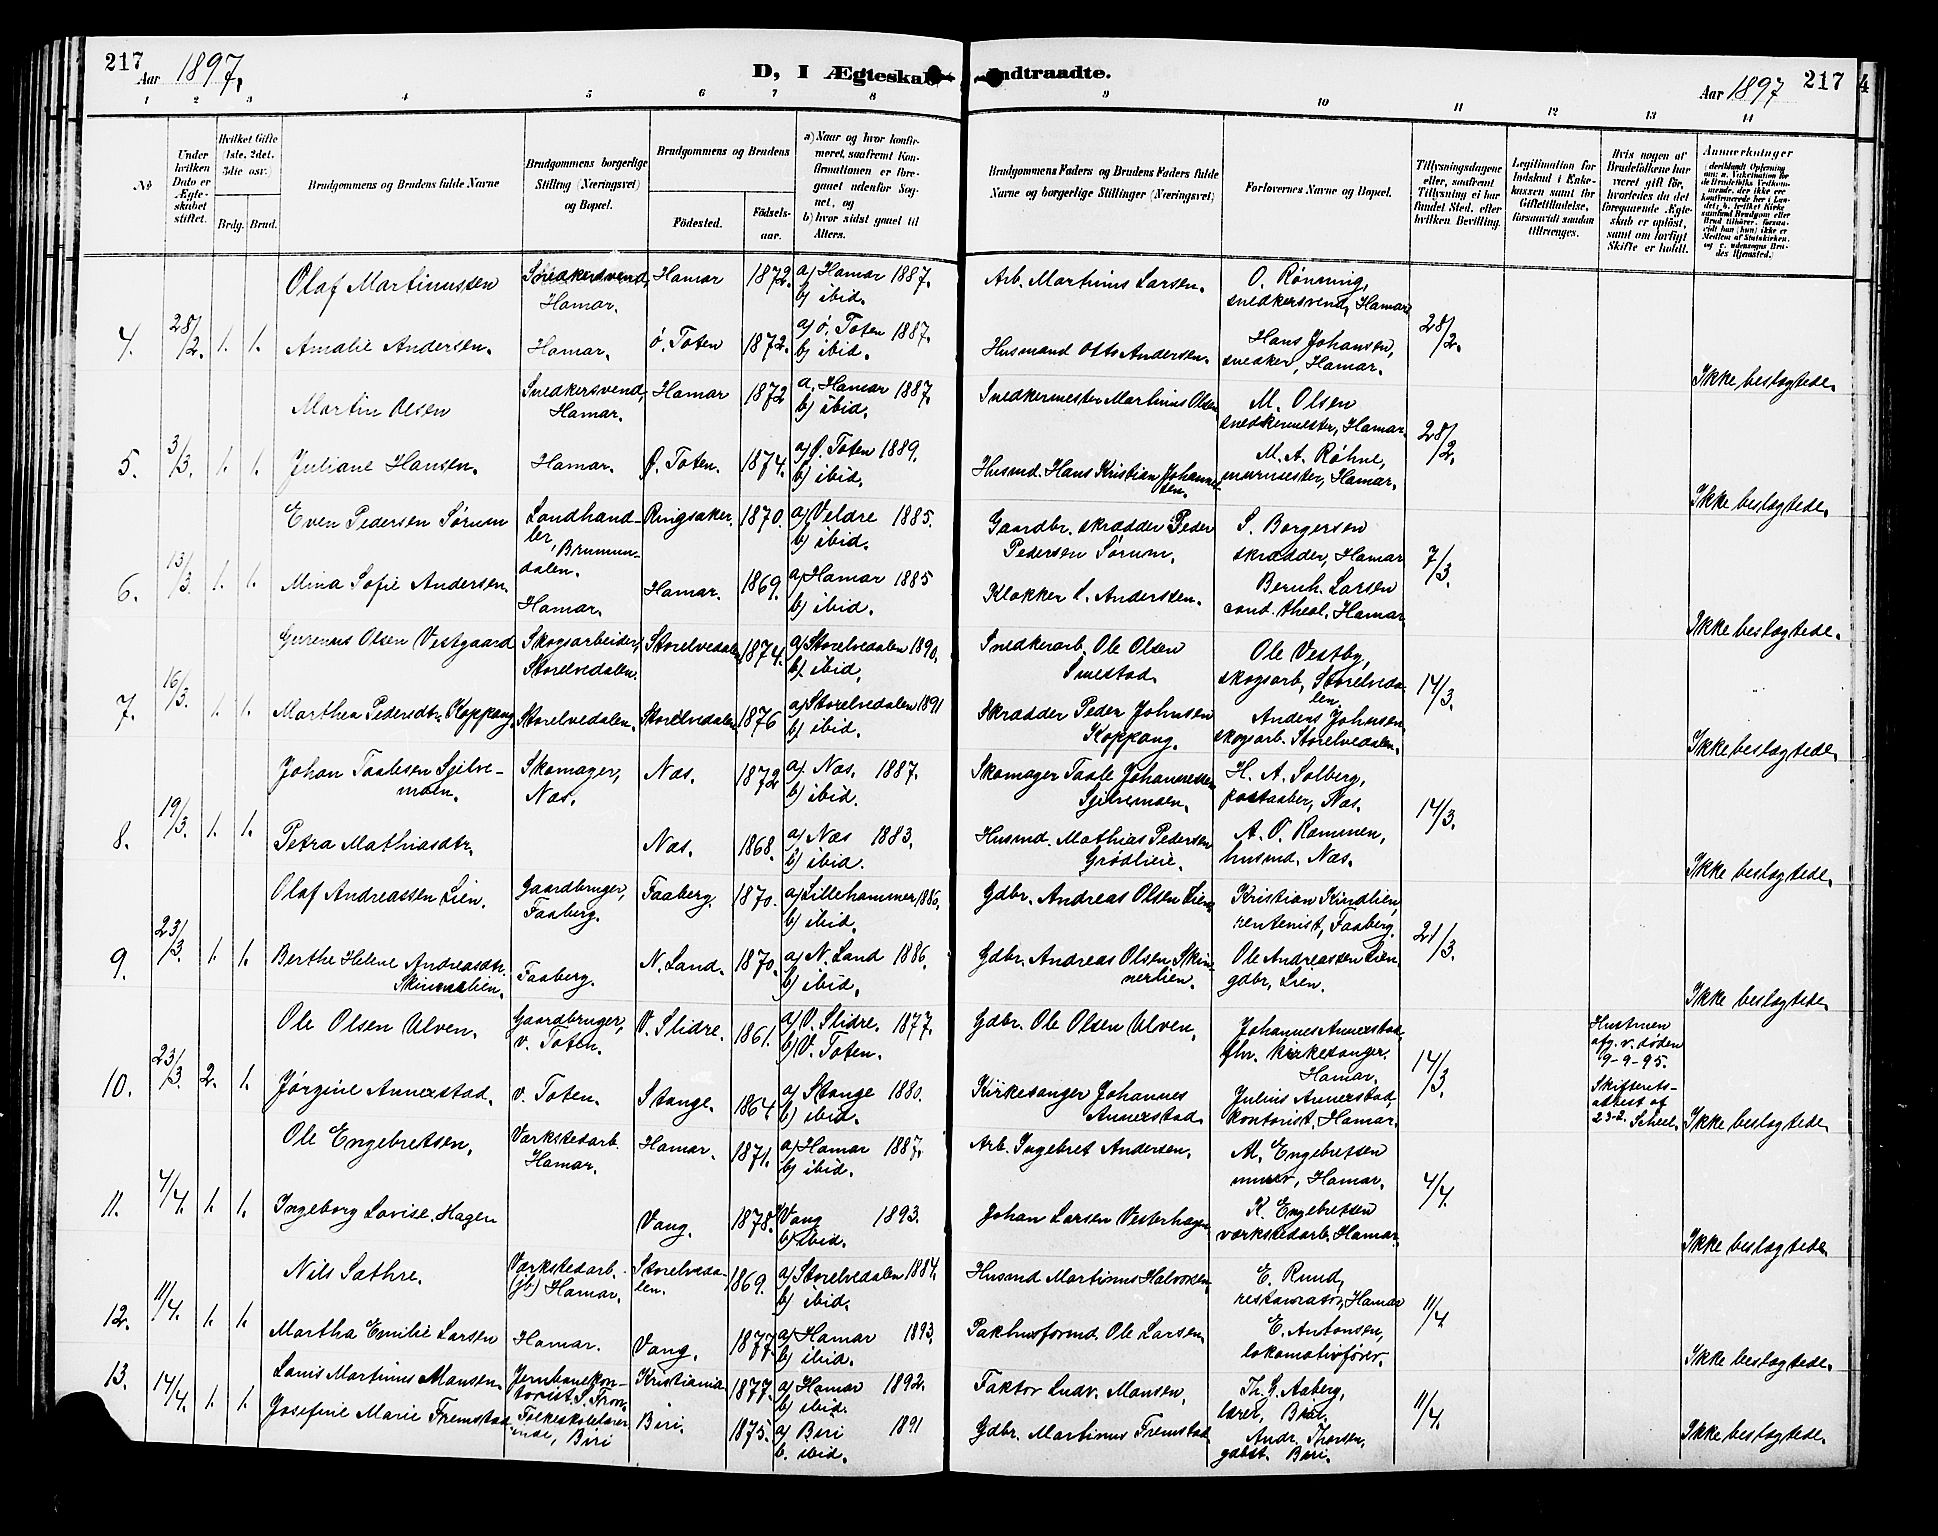 217 Aar 1897.
D, I Ægteska
Indtraadte.
Aar 1897 217
4
1 2 3 4 5 6 7 8 9 10 11 12 13 14
No
Under hvilken Dato er Ægteskabet stiftet.
Hvilket Gifte (1ste, 2det, 3die osv.)
Brdg. Brud.
Brudgommens og Brudens fulde Navne
Brudgommens borgerlige Stilling (Næringsvei) og Bopæl.
Brudgommens og Brudens
Födested.
Födselsaar.
a) Naar og hvor konfirmeret, saafremt Konfirmationen er foregaaet udenfor Sognet, og
b) hvor sidst gaaet til Alters.
Brudgommens Faders og Brudens Faders fulde Navne og borgerlige Stillinger (Næringsvei)
Forlovernes Navne og Bopæl.
Tillysningsdagene eller, saafremt Tillysning ei har fundet Sted, efter hvilken Bevilling.
Legitimation for Indskud i Enkekassen samt for Giftetilladelse, forsaavidt saadan tiltrænges.
Hvis nogen af Brudefolkene har været gift för, hvorledes da det foregaaende Ægteskab er oplöst, samt om lovligt Skifte er holdt.
Anmærkninger
4. 28/2. 1. 1.
Olaf Martinussen
Snedkersvend, Hamar.
Hamar 1872.
a) Hamar 1887.
b) ibid.
Arb. Martinus Larsen.
O. Rønning,
snedkersvend, Hamar
Amalie Andersen.
Hamar.
ø. Toten 1872.
a) ø. Toten 1887.
b) ibid.
Husmand Otto Andersen.
Hans Johansen,
snedker, Hamar.
28/2.
Ikke beslægtede.
5. 3/3. 1. 1.
Martin Olsen
Snedkersvend, Hamar.
Hamar 1872
a. Hamar 1887.
b) ibid.
Snedkermester Martinus Olsen
M. Olsen
snedkermester, Hamar.
Juliane Hansen.
Hamar.
Ø. Toten. 1874.
a) Ø. Toten 1889.
b) ibid.
Husmd. Hans Kristian Johannessen.
M. A. Røhne,
murmester, Hamar.
28/2.
Ikke beslægtede.
6. 13/3. 1. 1.
Even Pedersen Sørum
Landhandler, Brummundalen.
Ringsaker. 1870.
a) Veldre 1885.
b) ibid.
Gaardbr. skrædder Peder
Pedersen Sørum.
S. Borgersen
skrædder, Hamar
Mina Sofie Andersen.
Hamar.
Hamar. 1869.
a) Hamar 1885
b) ibid.
Klokker C. Anderssen.
Bernh. Larsen
cand. theol. Hamar
7/3.
Ikke beslægtede.
7. 16/3. 1. 1.
Olsen Vestgaard
Skogsarbeider, Storelvedalen.
Storelvedalen 1874.
a) Storelvedalen 1890.
b). ibid.
Snedkerarb. Ole Olsen
Smestad.
Ole Vestby,
skogsarb, Storelvedalen.
Marthea Pedersdtr. Koppang.
Storelvedalen.
Storelvedalen. 1876
a) Storelvedalen 1891
b) ibid.
Skrædder Peder Johnsen
Koppang.
Anders Johnsen
skogsarb. Storelvedalen.
14/3.
Ikke beslægtede
8. 19/3. 1. 1.
Johan Taalesen Sjelvemoen.
Skomager, Næs.
Næs. 1872
a). Næs. 1887.
b) ibid.
Skomager Taale Johannessen
Sjelvemoen.
H. A. Solberg,
postaaber, Næs.
Petra Mathiasdtr.
Næs. 1868.
a) Næs 1883.
b) ibid.
Husmd. Mathias Pedersen
Grødlieie.
A. O. Rammen,
husmd. Næs.
14/3.
Ikke beslægtede.
9. 23/3. 1. 1.
Olaf Andreassen Lien.
Gaardbruger, Faaberg.
Faaberg. 1870.
a) Lillehammer 1886.
b) ibid.
Gdbr. Andreas Olsen Lien
Kristian Kindlien,
rentenist, Faaberg.
Berthe Helene Andreasdtr.
Skinnerlien.
Faaberg.
N. Land. 1870.
a) N. Land 1886.
b) ibid.
Gdbr. Andreas Olsen Skinnerlien.
Ole Andreassen Lien
gdbr, Lien.
21/3.
Ikke beslægtede
10. 23/3. 2. 1.
Ole Olsen Ulven.
Gaardbruger, v. Toten.
V. Slidre. 1861.
a) V. Slidre. 1877.
b) V. Toten.
Gdbr. Ole Olsen Ulven.
Johannes Annerstad
fhv. kirkesanger.
Hamar.
Jørgine Annerstad.
v. Toten.
Stange. 1864
a) Stange 1880.
b) ibid.
Kirkesanger Johannes
Annerstad.
Julius Annerstad
kontorist, Hamar.
14/3.
Hustruen
afg. v. døden
9-9-95.
Skifterets-
attest af
23-2. Scheel.
Ikke beslægtede
11. 4/4. 1. 1.
Ole Engebretsen.
Værkstedarb. Hamar.
Hamar. 1871.
a) Hamar 1887.
b) ibid.
Arb. Ingebret Andersen.
M. Engebretsen
murer, Hamar.
Ingeborg Lovise. Hagen
Vang. 1878.
Vang 1893.
b) ibid.
Johan Larsen Vesterhagen
K. Engebretsen
værkstedarb. Hamar.
4/4.
Ikke beslægtede
12. 11/4. 1. 1.
Nils Sathre.
Værkstedarb. (jb) Hamar.
Storelvedalen. 1869.
a) Storelvedalen 1884.
b) ibid.
Husmd Martinus Halvorsen
E. Ruud,
restauratør, Hamar
Martha Emilie Larsen
Hamar.
Vang. 1877.
a) Hamar 1893.
b) ibid.
Pakhusformd. Ole Larsen.
E. Antonsen,
lokomotivfører.
11/4.
Ikke beslægtede.
13. 14/4. 1. 1.
Lauis Martinus Mansen.
Jernbanekontorist. S. Tron
Kristiania 1877.
a) Hamar 1892.
b) ibid.
Faktor Ludv. Mansen.
Th. G. Aaberg,
lærer, Biri.
Josefine Marie Fremstad
Folkeskolelærerinde, Biri
Biri. 1875.
a) Biri 1891
b. ibid.
Gdbr. Martinus Fremstad
Andr. Thorsen,
gdbst. Biri.
11/4.
Ikke beslægtede.